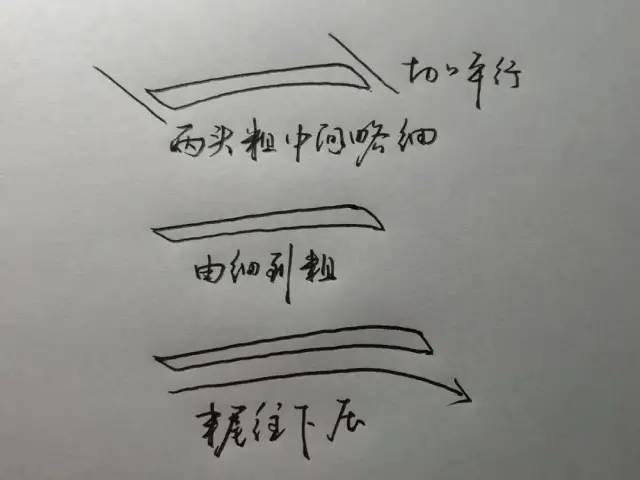 切口平行
两头粗中间略细
由细到粗
末尾往下压